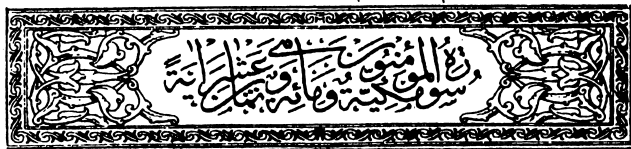 سورة المؤمنون مكية وهى مائة وثمان عشر اية